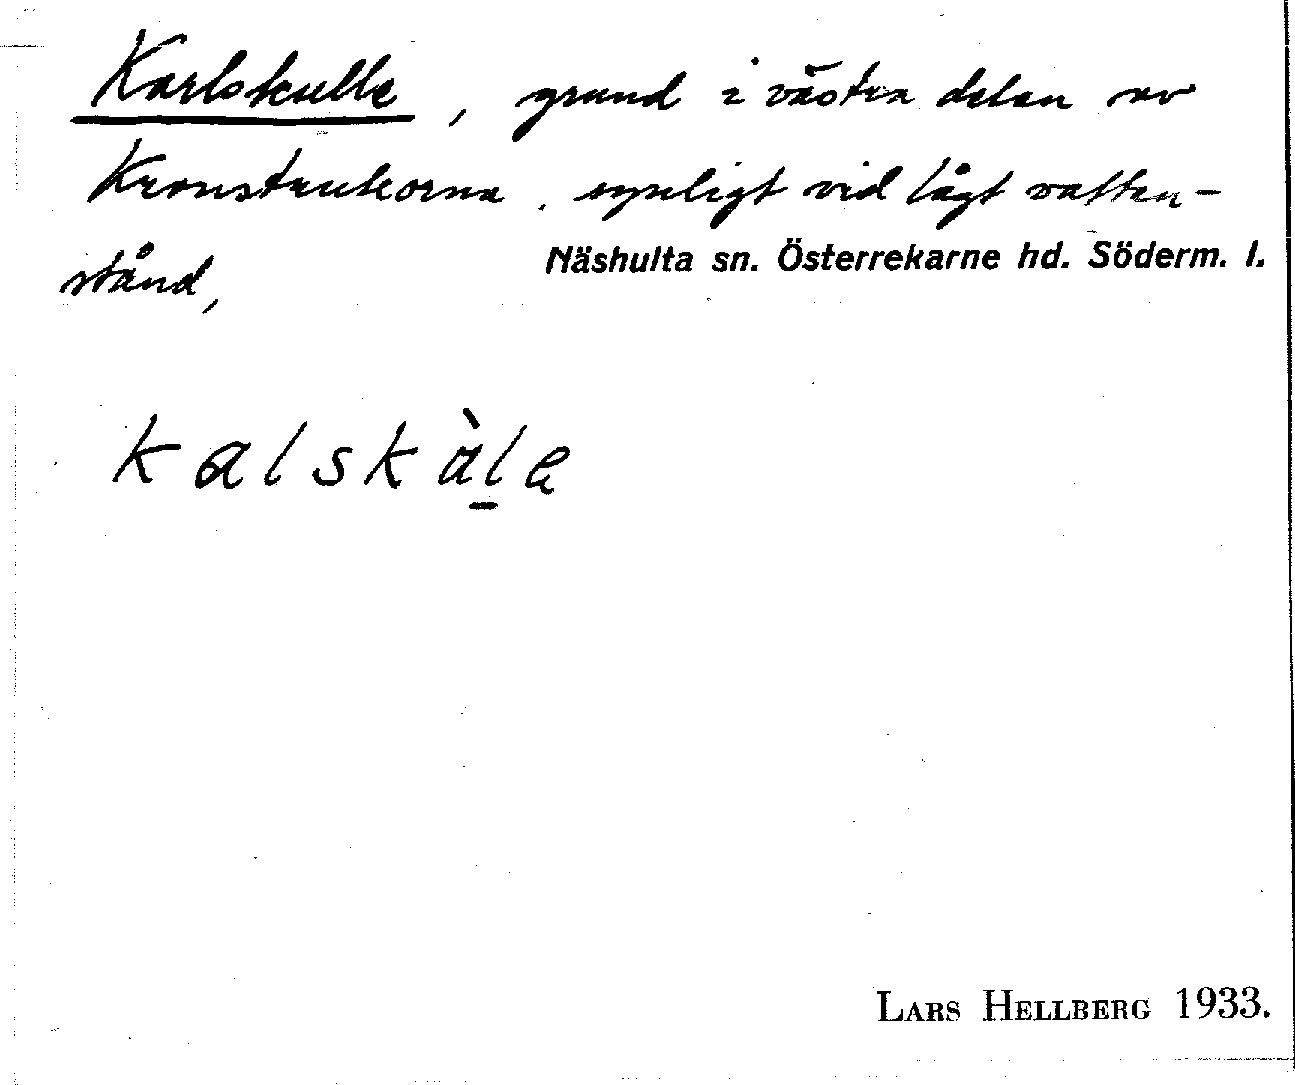 Karlskulle, grund i västra delen av
Kronstruttorna, synligt vid lågt vatten-
stånd,
Näshulta sn. Österrekarne hd. Söderm. l.
kalskùle
LARS HELLBERG 1933.